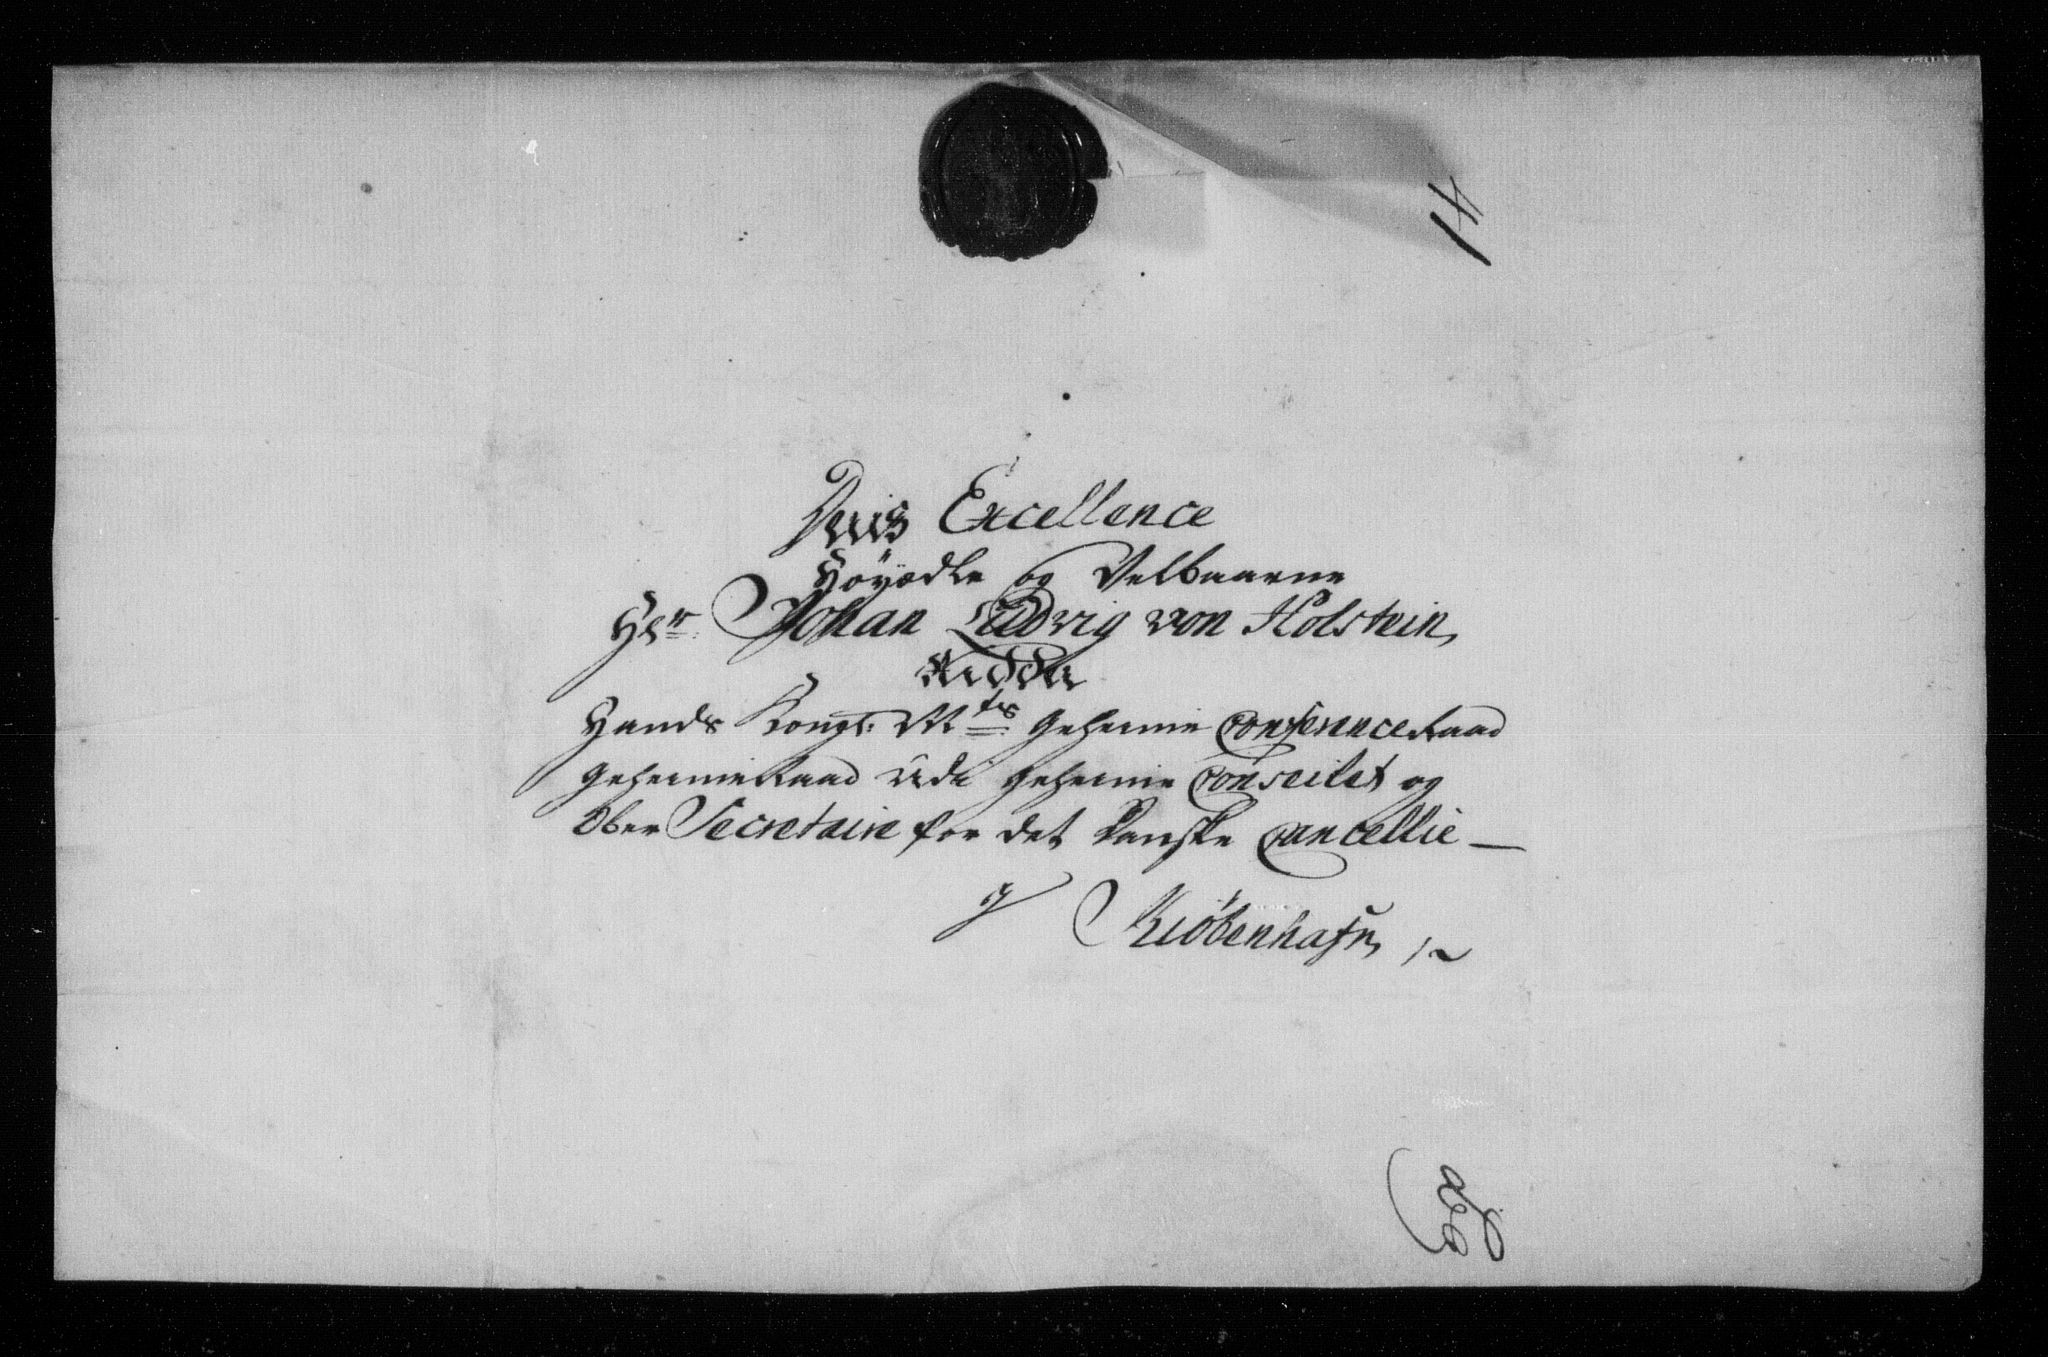 41
Deris Excellence
Høyædle og Velbaarne
Hr. Johan Ludvig von Holstein,
Ridder
Hands Kongl: Mts Geheime Conference Raad
Geheime Raad udi Geheime Conseilet og
Ober Secretaire for det Danske Cancellie —
Kiøbenhafn